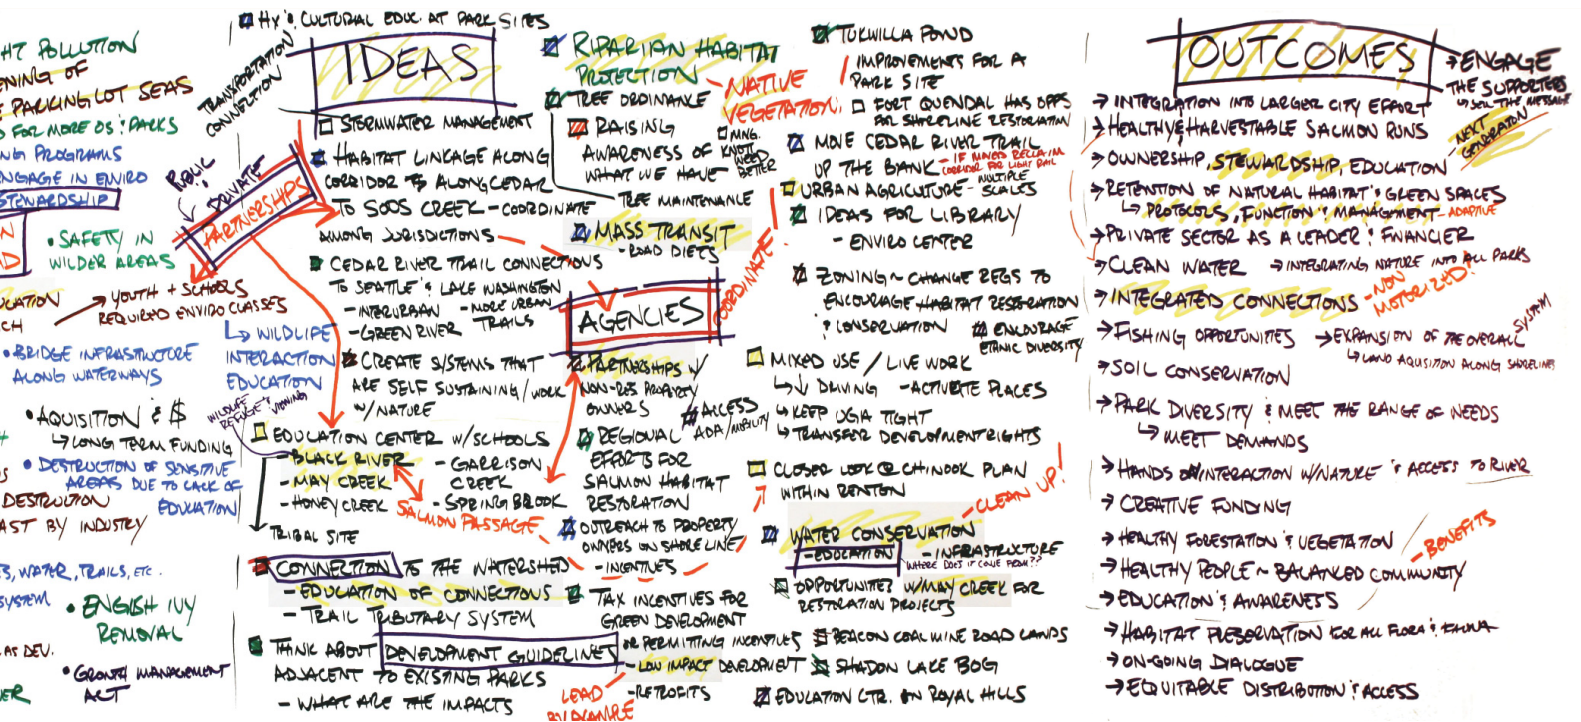 HT POLLUTION
ENING OF
PARKING LOT SEAS
FOR MORE OS & PARKS
NG PROGRAMS
NGAGE IN ENVIRO
STEWARDSHIP
• SAFETY IN
WILDER AREAS
UCATION
CH
→ YOUTH + SCHOOLS
REQUIRED ENVIRO CLASSES
↳ WILDLIFE
INTERACTION
EDUCATION
• BRIDGE INFRASTRUCTURE
ALONG WATERWAYS
• AQUISITION & $
↳ LONG TERM FUNDING
• DESTRUCTION OF SENSITIVE
AREAS DUE TO LACK OF
EDUCATION
DESTRUCTION
AST BY INDUSTRY
S, WATER, TRAILS, ETC.
SYSTEM
• ENGLISH IVY
REMOVAL
AS DEV.
• GROWTH MANAGEMENT
ACT
VER
HX & CULTURAL EDUC. AT PARK SITES
TRANSPORTATION
CONNECTION
IDEAS
PUBLIC
PRIVATE
PARTNERSHIPS
STORMWATER MANAGEMENT
HABITAT LINKAGE ALONG
CORRIDOR & ALONG CEDAR
TO SOOS CREEK - COORDINATE
AMONG JURISDICTIONS
CEDAR RIVER TRAIL CONNECTIONS
TO SEATTLE & LAKE WASHINGTON
- INTERURBAN - MORE URBAN
- GREEN RIVER TRAILS
CREATE SYSTEMS THAT
ARE SELF SUSTAINING / WORK
W/ NATURE
WILDLIFE
REFUGE & VIEWING
EDUCATION CENTER W/ SCHOOLS
- BLACK RIVER - GARRISON
CREEK
- MAY CREEK
- HONEY CREEK - SPRING BROOK
SALMON PASSAGE
TRIBAL SITE
CONNECTION TO THE WATERSHED
- EDUCATION OF CONNECTIONS
- TRAIL TRIBUTARY SYSTEM
THINK ABOUT DEVELOPMENT GUIDELINES
ADJACENT TO EXISTING PARKS
- WHAT ARE THE IMPACTS
RIPARIAN HABITAT
PROTECTION - NATIVE
VEGETATION
TREE ORDINANCE
RAISING
AWARENESS OF
WHAT WE HAVE
MNG.
KNOT
WEED
BETTER
TREE MAINTENANCE
MASS TRANSIT
- ROAD DIETS
COORDINATE!
AGENCIES
PARTNERSHIPS W/
NON-RES PROPERTY
OWNERS
ACCESS
ADA / MOBILITY
REGIONAL
EFFORTS FOR
SALMON HABITAT
RESTORATION
OUTREACH TO PROPERTY
OWNERS ON SHORELINE
- INCENTIVES
TAX INCENTIVES FOR
GREEN DEVELOPMENT
OR PERMITTING INCENTIVES
- LOW IMPACT DEVELOPMENT
- RETROFITS
LEAD
BY EXAMPLE
TUKWILLA POND
IMPROVEMENTS FOR A
PARK SITE
FORT QUENDAL HAS OPPS
FOR SHORELINE RESTORATION
MOVE CEDAR RIVER TRAIL
UP THE BANK - IF MOVED RECLAIM
CORRIDOR FOR LIGHT RAIL
URBAN AGRICULTURE - MULTIPLE
SCALES
IDEAS FOR LIBRARY /
- ENVIRO CENTER
ZONING ~ CHANGE REGS TO
ENCOURAGE HABITAT RESTORATION
& CONSERVATION
ENCOURAGE
ETHNIC DIVERSITY
MIXED USE / LIVE WORK
↳ ↓ DRIVING - ACTIVATE PLACES
↳ KEEP UGA TIGHT
↳ TRANSFER DEVELOPMENT RIGHTS
CLOSER LOOK @ CHINOOK PLAN
WITHIN RENTON
- CLEAN UP!
WATER CONSERVATION
- EDUCATION - INFRASTRUCTURE
WHERE DOES IT COME FROM??
OPPORTUNITIES W/ MAY CREEK FOR
RESTORATION PROJECTS
BEACON COAL MINE ROAD LANDS
SHADOW LAKE BOG
EDUCATION CTR. ON ROYAL HILLS
OUTCOMES
→ ENGAGE
THE SUPPORTERS
↳ SELL THE MESSAGE
→ INTEGRATION INTO LARGER CITY EFFORT
→ HEALTHY & HARVESTABLE SALMON RUNS
→ OWNERSHIP, STEWARDSHIP, EDUCATION
NEXT
GENERATION
→ RETENTION OF NATURAL HABITAT & GREEN SPACES
↳ PROTOCOLS, FUNCTION & MANAGEMENT - ADAPTIVE
→ PRIVATE SECTOR AS A LEADER & FINANCIER
→ CLEAN WATER → INTEGRATING NATURE INTO ALL PARKS
→ INTEGRATED CONNECTIONS - NON
MOTORIZED!
→ FISHING OPPORTUNITIES → EXPANSION OF THE OVERALL SYSTEM
↳ LAND AQUSITION ALONG SHORELINES
→ SOIL CONSERVATION
→ PARK DIVERSITY & MEET THE RANGE OF NEEDS
↳ MEET DEMANDS
→ HANDS ON/INTERACTION W/NATURE & ACCESS TO RIVER
→ CREATIVE FUNDING
→ HEALTHY FORESTATION & VEGETATION
- BENEFITS
→ HEALTHY PEOPLE ~ BALANCED COMMUNITY
→ EDUCATION & AWARENESS
→ HABITAT PRESERVATION FOR ALL FLORA & FAUNA
→ ON-GOING DIALOGUE
→ EQUITABLE DISTRIBUTION & ACCESS